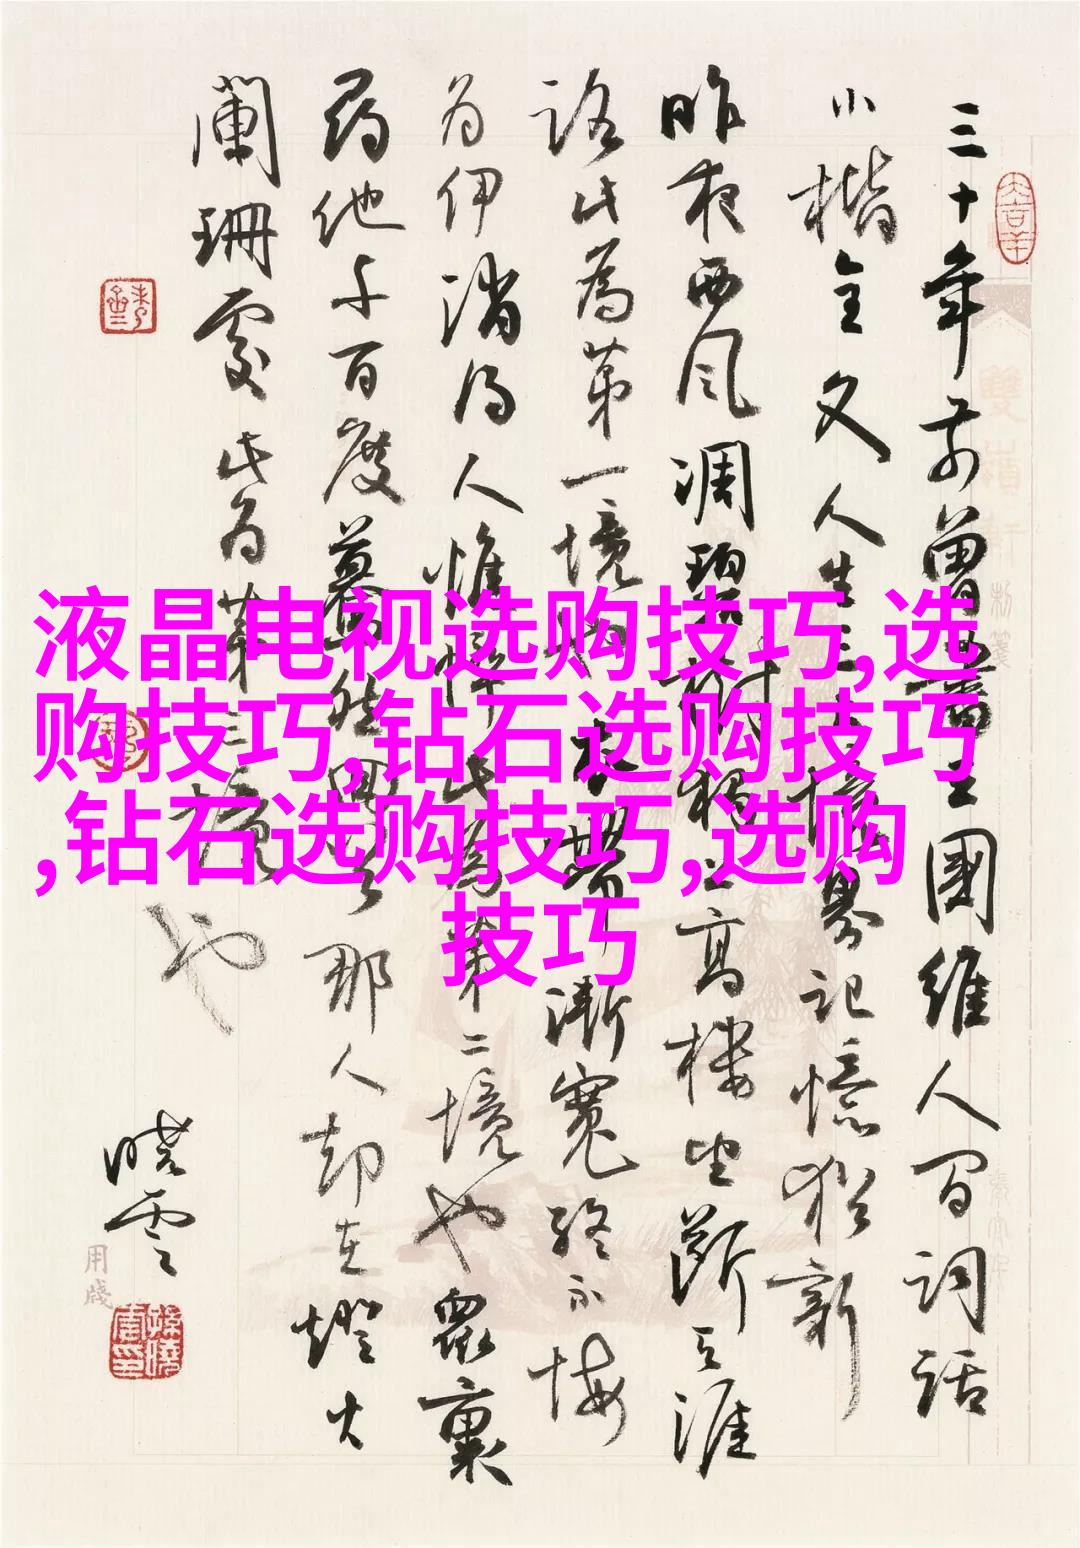 三十年前曾書王國維人间词话
小楷全文人生三大境界记憶犹新
昨夜西风凋碧树独上高楼望断天涯
路此为第一境也衣带渐寬终不悔
为伊消得人憔悴此为第二境也众里
寻他千百度蓦然回首那人却在燈火
阑珊處此为第三境也
晓云
液晶电视选购技巧,选
购技巧,钻石选购技巧
,钻石选购技巧,选购
技巧
用牋